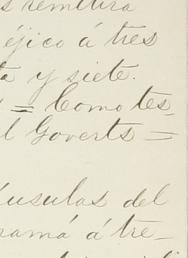 s remitirá
éjico á tres
ta y siete.
= Como tes-
l Goverts =
áusulas del
namá á tre-